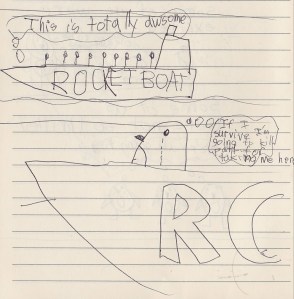 This is totally awsome
ROCKET BOAT
If I
survive I'm
going to kill
for
taking me here
R C